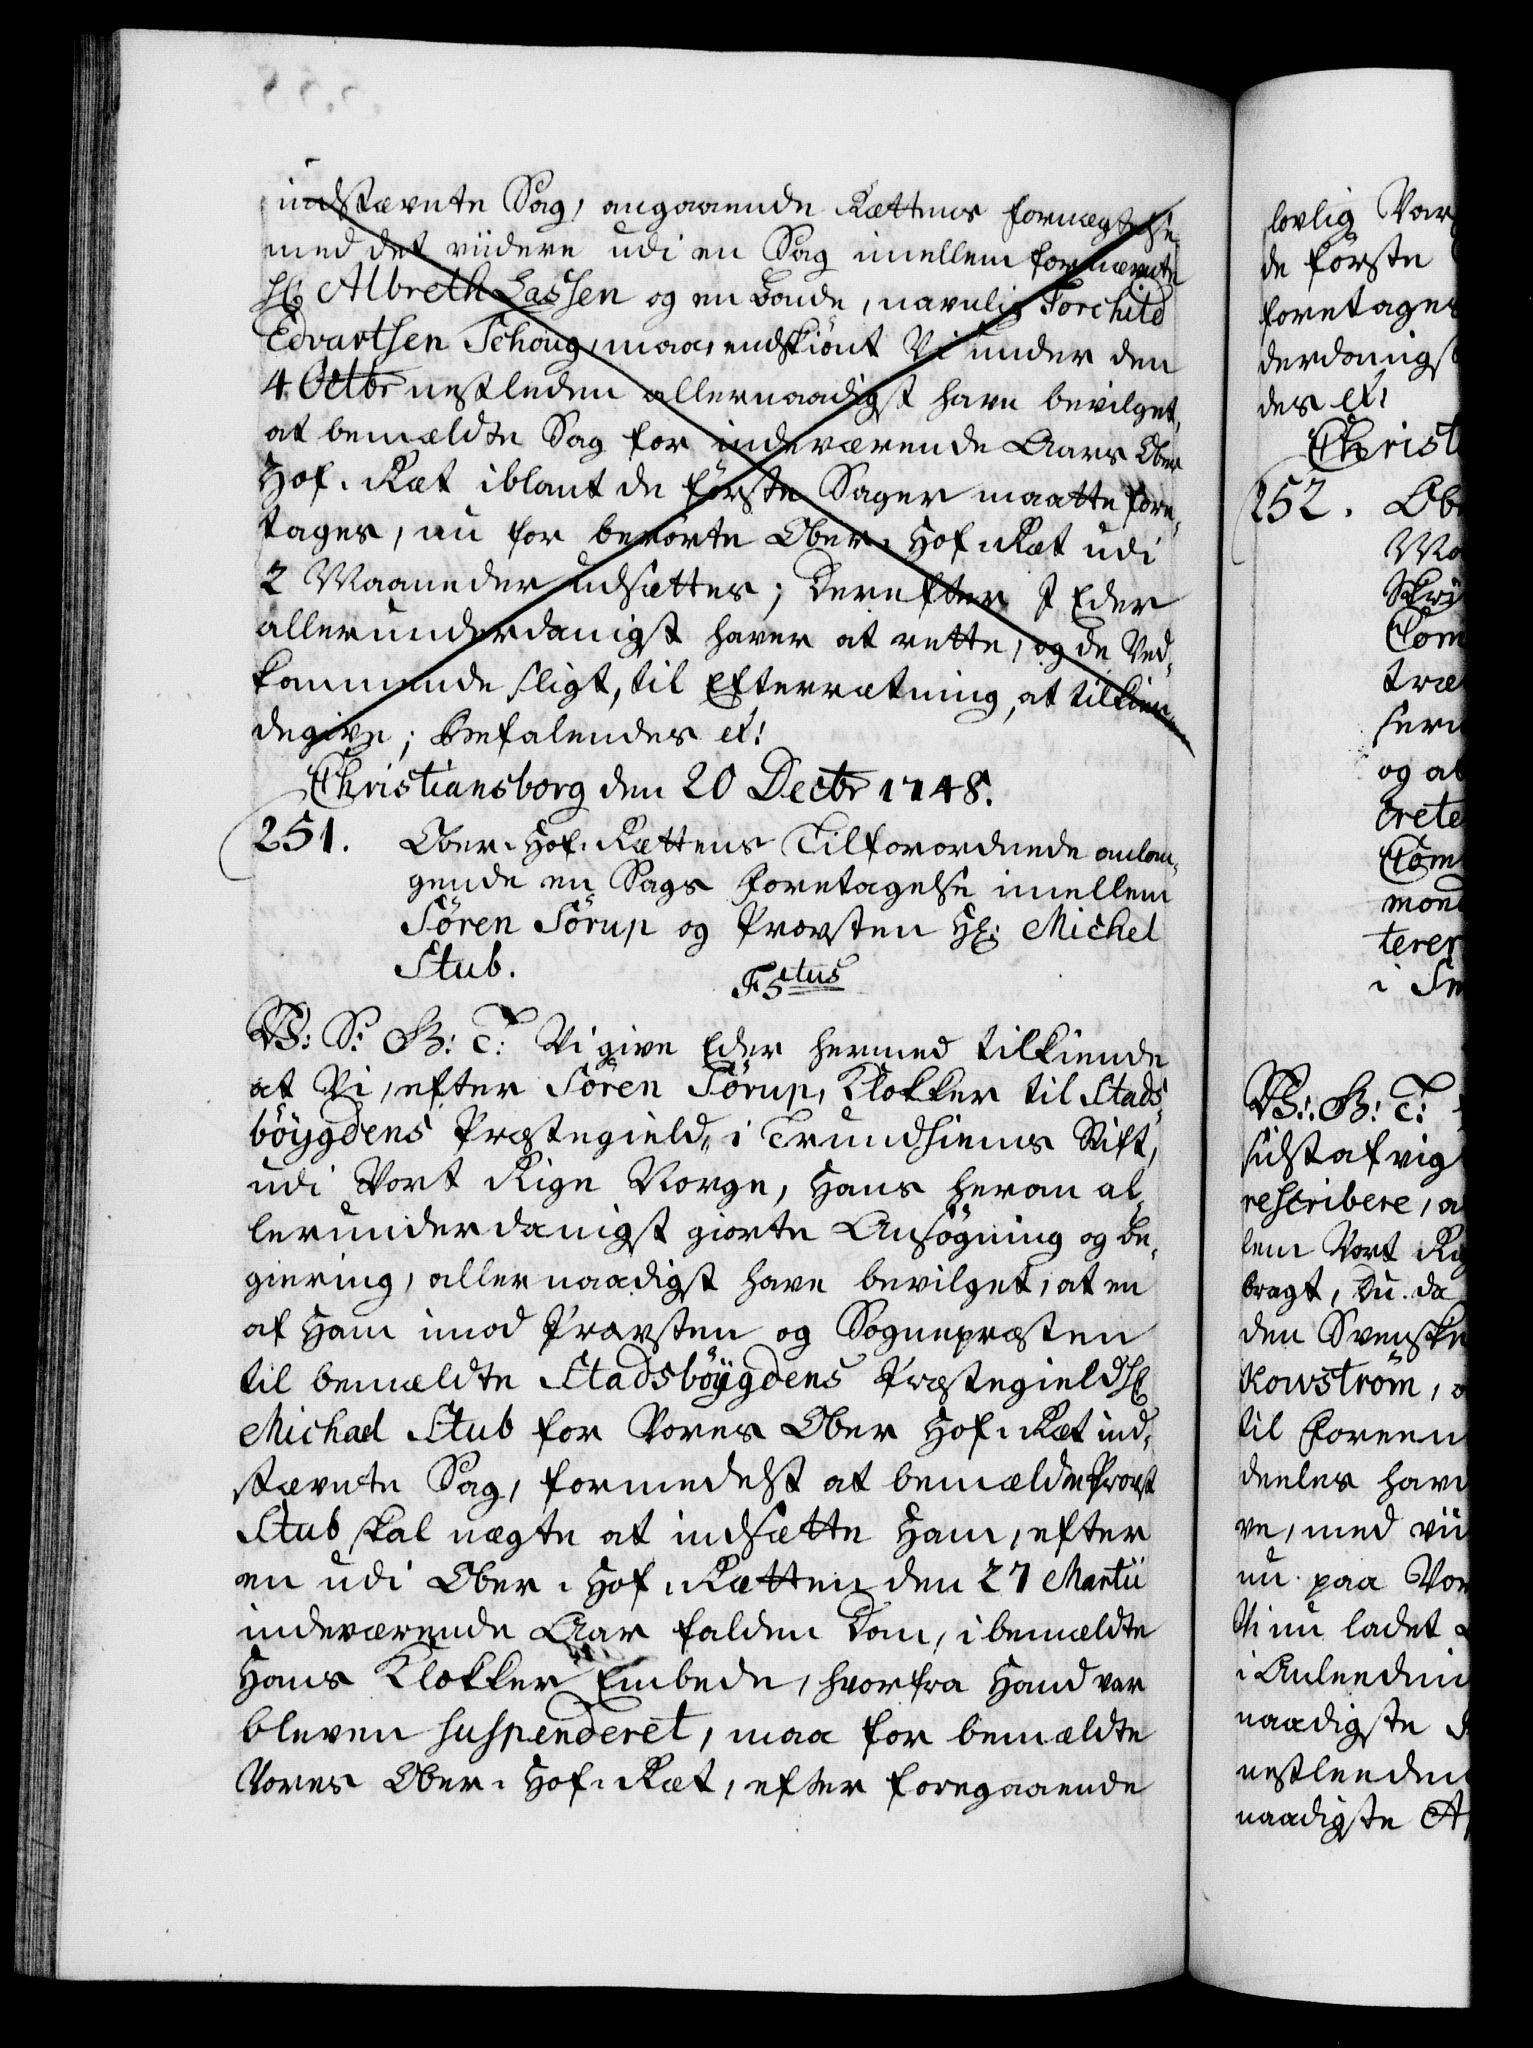 indstævnte Sag, angaaende Rættens fornægtelse
med det viidere udi en Sag imellem fornævnte
Hr Albreth Lassen og en Bonde, navnlig Torchild
Edvartsen Schoug, maa, endskiönt Vi under den
4 Octbr nestleden allernaadigst have bevilget,
at bemældte Sag for indeværende Aars Ober
Hof-Ræt iblant de første Sager maatte fore-
tages, nu for berörte Ober-Hof-Ræt udi
2 Maaneder udsættes; Derefter I Eder
allerunderdanigst haver at rette, og de Ved-
kommende sligt, til Efterrætning, at tilkien-
degive; Befalendes etc:
Christiansborg den 20 Decbr 1748.
251. Ober-Hof-Rættens Tilforordnede anlan-
gende en Sags Foretagelse imellem
Sören Sörup og Provsten Hr: Michel
Stub.
F5tus
V: S: G: T: Vi give Eder hermed tilkiende
at Vi, efter Sören Sörup, Klokker til Stads-
böygdens Præstegield, i Trundhiems Stift,
udi Vort Rige Norge, Hans herom al-
lerunderdanigst giorte Ansögning og Be-
giering, allernaadigst have bevilget, at en
af Ham imod Provsten og Sognepræsten
til bemældte Stadsböygdens Præstegield Hr
Michael Stub for Vores Ober Hof-Ræt ind-
stævnte Sag, formedelst at bemældte Provst
Stub skal nægte at indsætte Ham, efter
en udi Ober-Hof-Rætten den 27 Martii
indeværende Aar falden Dom, i bemældte
Hans Klokker Embede, hvorfra Hand var
bleven suspenderet, maa for bemældte
Vores Ober-Hof-Ræt, efter foregaaende
lovlig Var
de förste
foretages
derdanigst
des etc:
Christ
252. Ob
Com
og at
Com
mond
terer
V: G: T:
sidst afvig
rescribere, a
lem Vort Ri
bragt, Du da
den Svenske
Kowström, o
til Foreen
deeles have
ve, med vii
nu paa Vor
Vi nu ladet
i Anleedni
naadigste
nestleeden
naadigste A